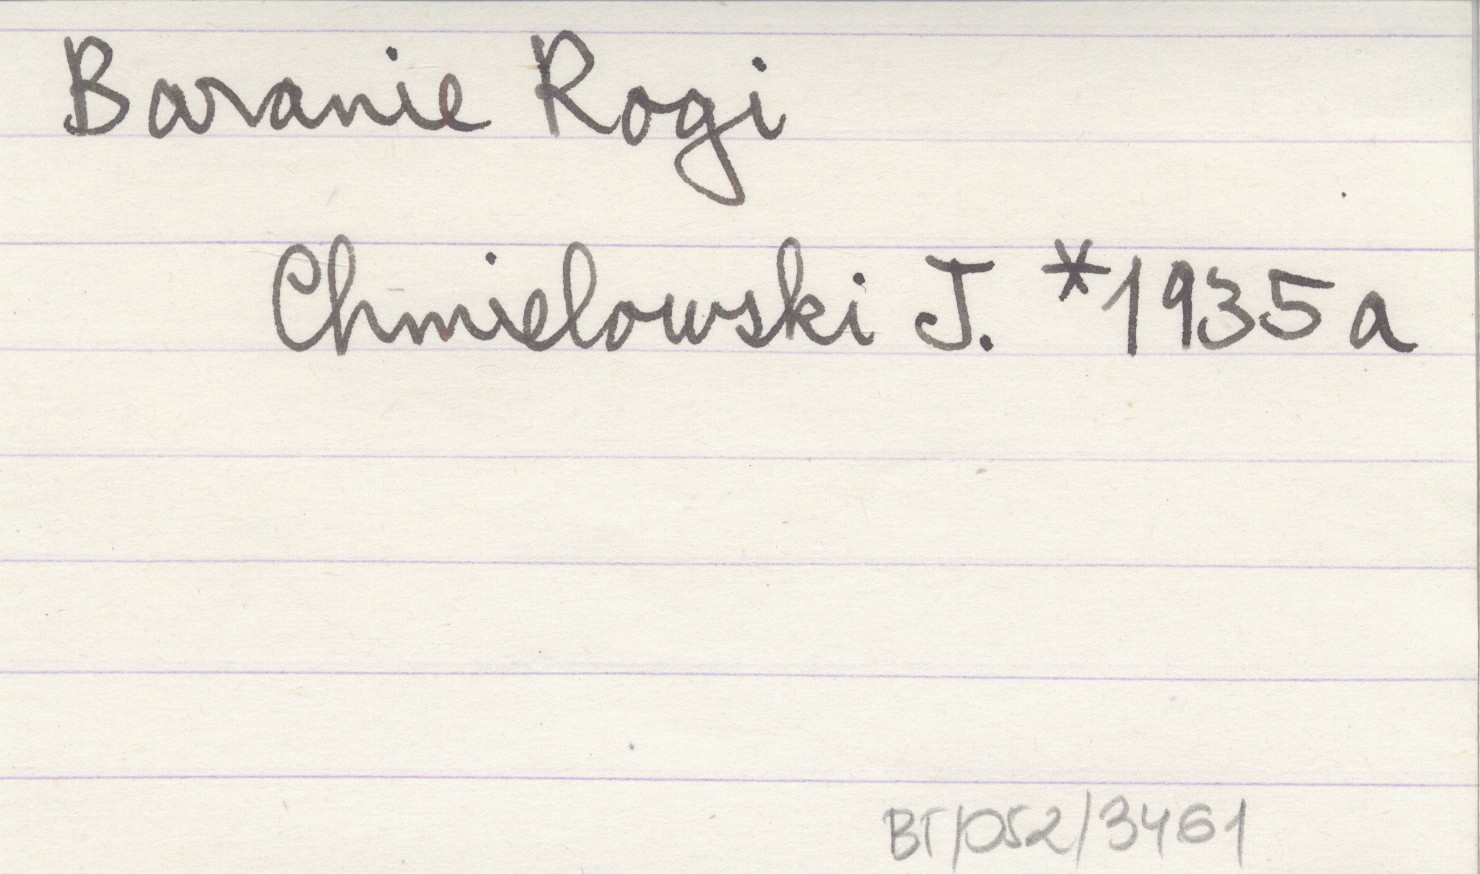 Baranie Rogi
Chmielowski J. *1935a
BT/052/3461